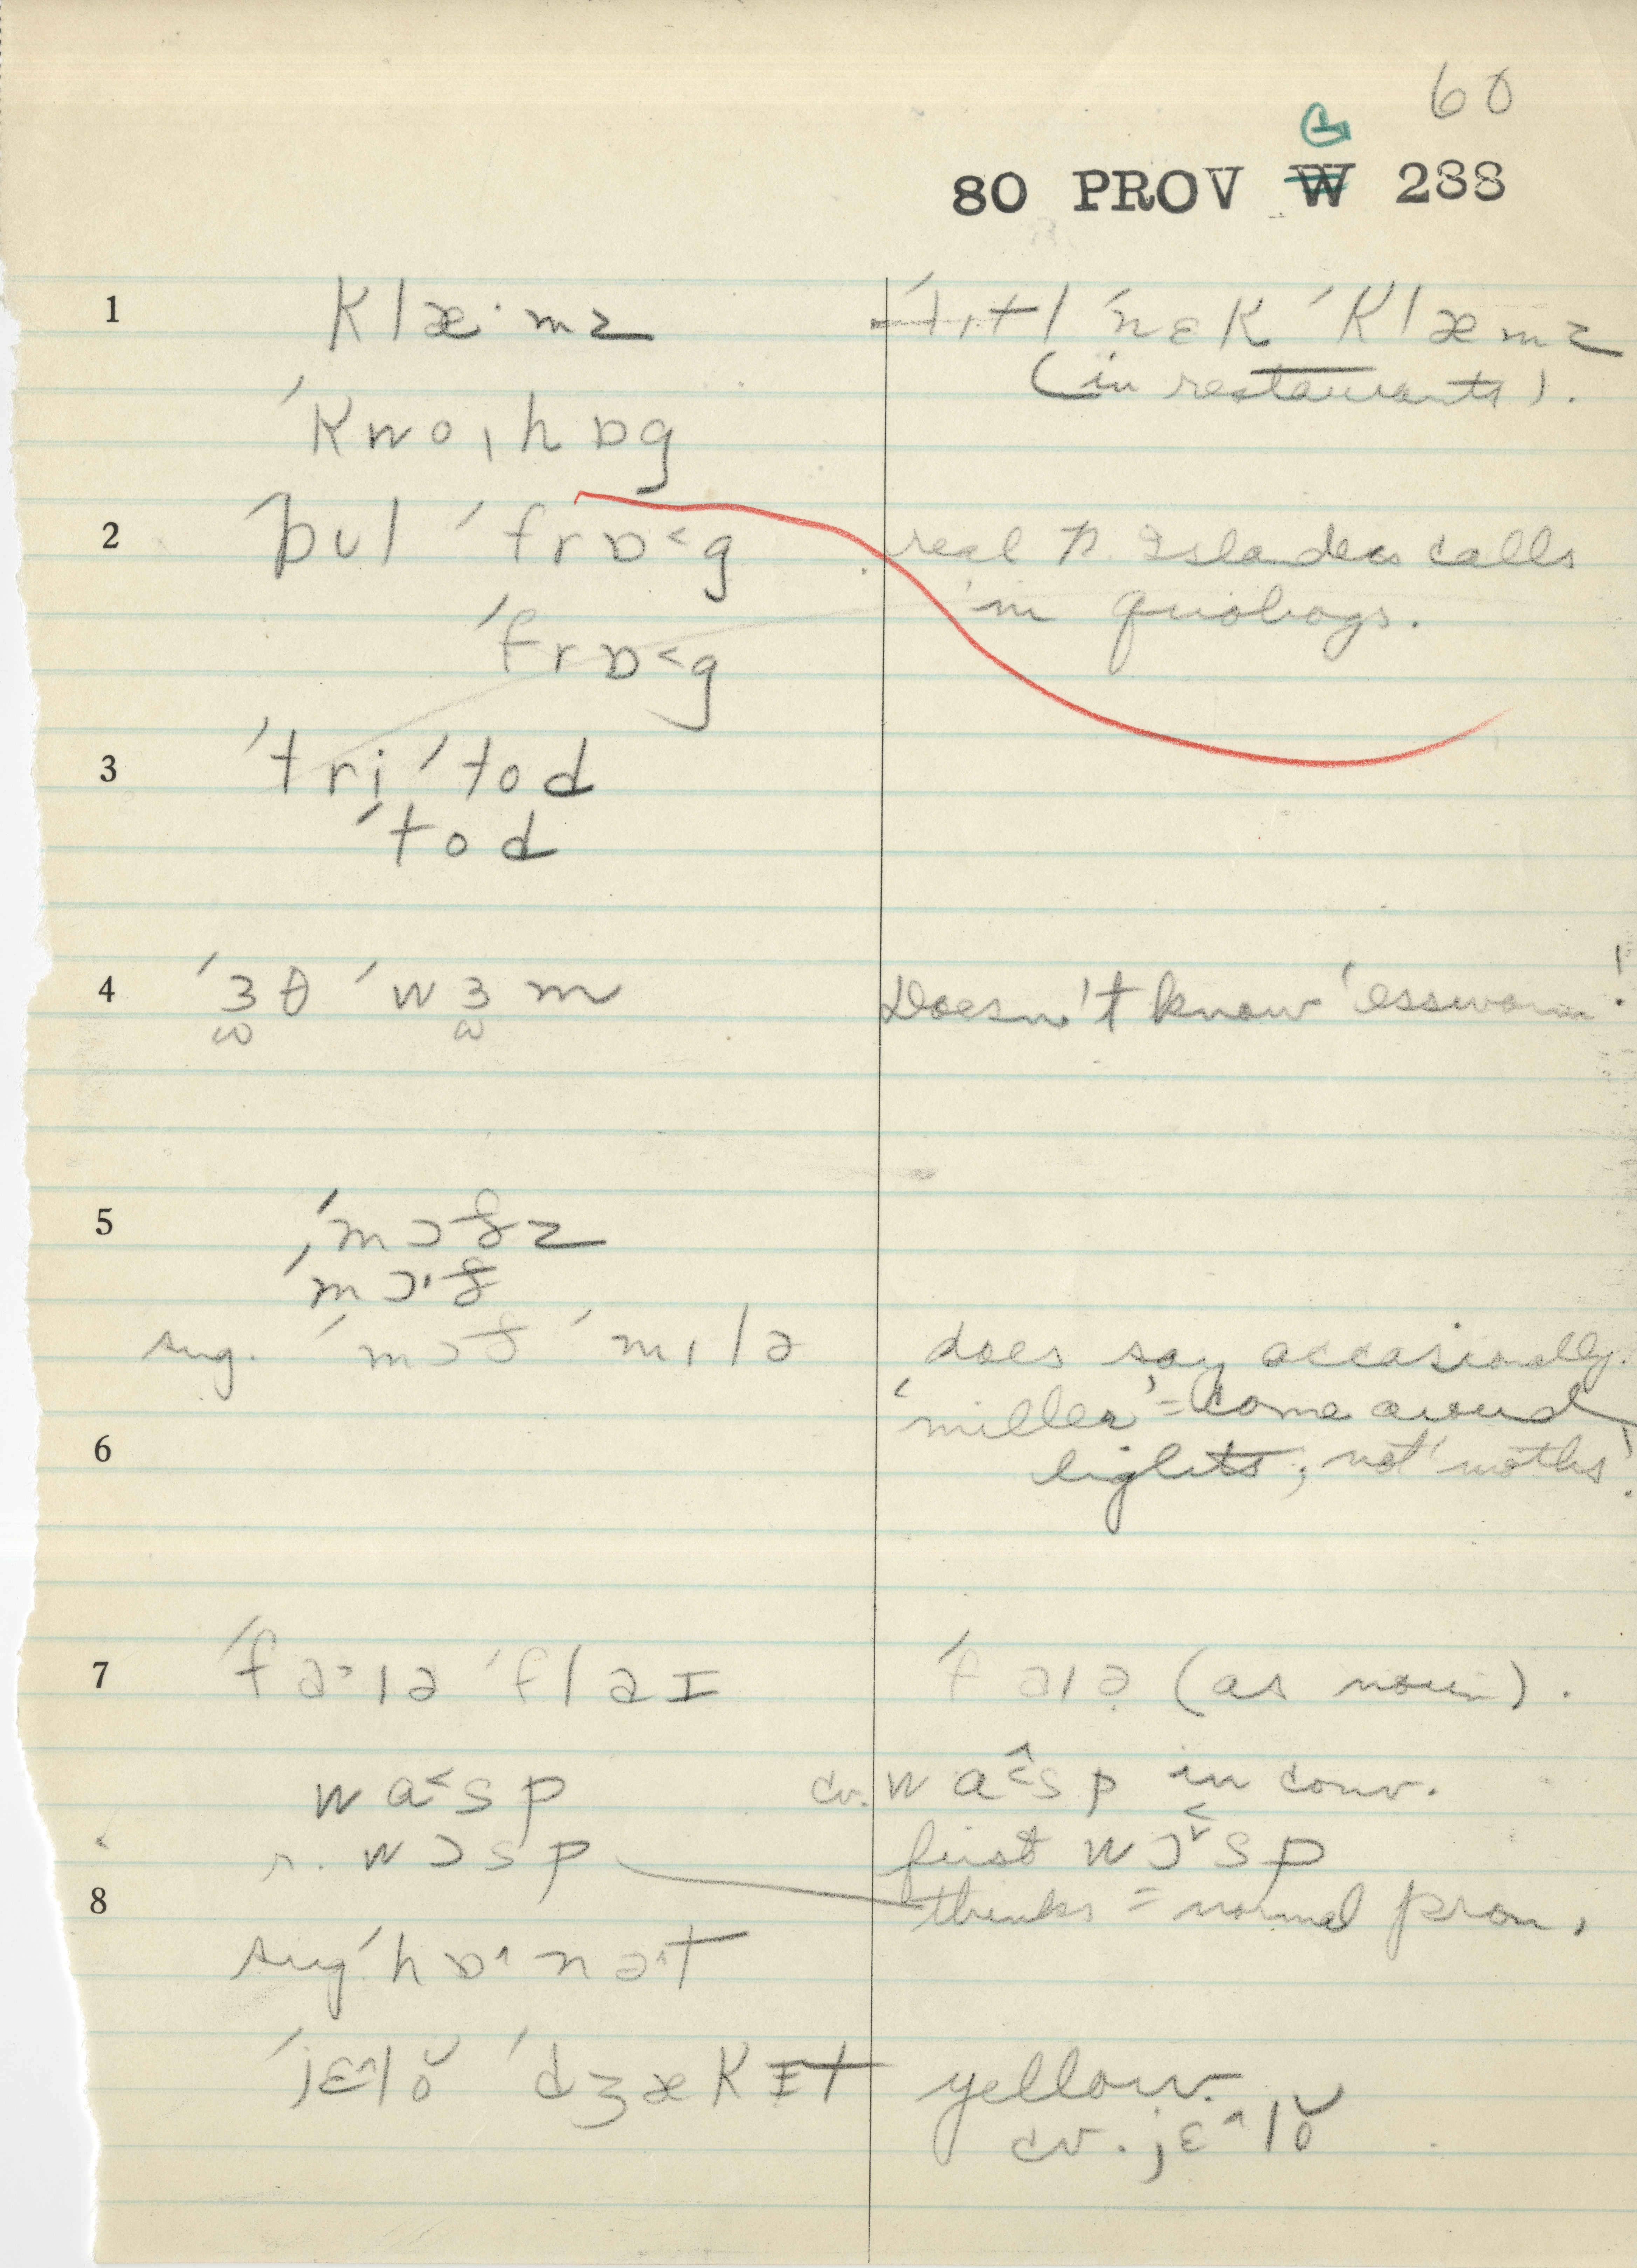 60
G
80 PROV W 288
1 klæ·mz ˈlɪtl ˈnɛk ˈklæmz
(in restaurants).
ˈkwoˌhɒg
2 ˈbʊl ˈfrɒ˂g real R. Islander calls
'm quohogs.
ˈfrɒ˂g
3 ˈtri ˈtod
ˈtod
4 ˈɜθ ˈwɜm Doesn't know 'essworm'!
5 ˈmɔθz
ˈmɔ·θ
sug. ˈmɔθ ˈmɪlə does say occasionally.
'miller' = come around
6 lights; not 'moths'.
7 ˈfaɪə ˈflaɪ ˈfaɪə (as noun).
wa˂sp cv. wa˂sp in conv.
r. wɔsp first wɔsp
8 thinks = normal pron.
sug ˈhɒ˄nə˄t
ˈjɛ˄lŏ ˈdʒækɪt yellow.
cv. jɛ˄lŏ